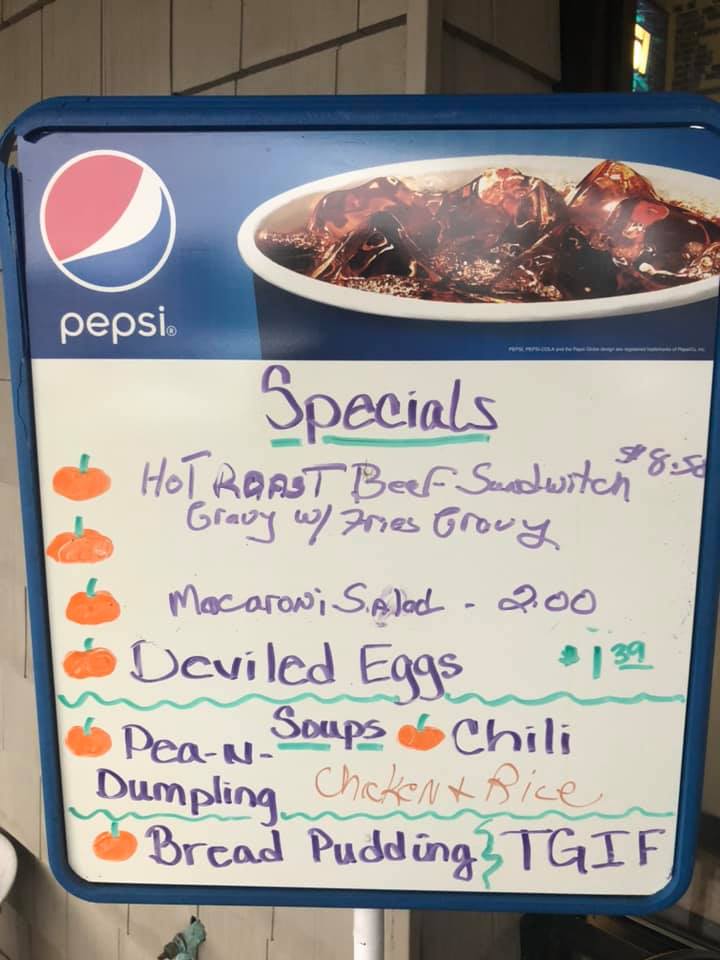 pepsi®
PEPSI, PEPSI-COLA and the Pepsi Globe design are registered trademarks of PepsiCo, Inc.
Specials
HOT ROAST Beef Sandwitch $8.50
Gravy w/ Fries Gravy
Macaroni Salad - 2.00
Deviled Eggs $1 39
Soups
Pea-N- Chili
Dumpling Chicken & Rice
Bread Pudding TGIF